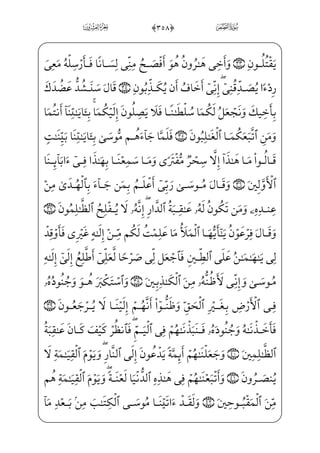 الجزء العشرون ﴿٣٥٨﴾ سورة القصص
يَقْتُلُونِ ﴿٣٣﴾ وَأَخِى هَـٰرُونُ هُوَ أَفْصَحُ مِنِّى لِسَانًا فَأَرْسِلْهُ مَعِىَ
رِدْءًا يُصَدِّقُنِىٓ ۖ إِنِّىٓ أَخَافُ أَن يُكَذِّبُونِ ﴿٣٤﴾ قَالَ سَنَشُدُّ عَضُدَكَ
بِأَخِيكَ وَنَجْعَلُ لَكُمَا سُلْطَـٰنًا فَلَا يَصِلُونَ إِلَيْكُمَا ۚ بِـَٔايَـٰتِنَآ أَنتُمَا
وَمَنِ ٱتَّبَعَكُمَا ٱلْغَـٰلِبُونَ ﴿٣٥﴾ فَلَمَّا جَآءَهُم مُّوسَىٰ بِـَٔايَـٰتِنَا بَيِّنَـٰتٍ
قَالُوا۟ مَا هَـٰذَآ إِلَّا سِحْرٌ مُّفْتَرًى وَمَا سَمِعْنَا بِهَـٰذَا فِىٓ ءَابَآئِنَا
ٱلْأَوَّلِينَ ﴿٣٦﴾ وَقَالَ مُوسَىٰ رَبِّىٓ أَعْلَمُ بِمَن جَآءَ بِٱلْهُدَىٰ مِنْ
عِندِهِۦ وَمَن تَكُونُ لَهُۥ عَـٰقِبَةُ ٱلدَّارِ ۖ إِنَّهُۥ لَا يُفْلِحُ ٱلظَّـٰلِمُونَ ﴿٣٧﴾
وَقَالَ فِرْعَوْنُ يَـٰٓأَيُّهَا ٱلْمَلَأُ مَا عَلِمْتُ لَكُم مِّنْ إِلَـٰهٍ غَيْرِى فَأَوْقِدْ
لِى يَـٰهَـٰمَـٰنُ عَلَى ٱلطِّينِ فَٱجْعَل لِّى صَرْحًا لَّعَلِّىٓ أَطَّلِعُ إِلَىٰٓ إِلَـٰهِ
مُوسَىٰ وَإِنِّى لَأَظُنُّهُۥ مِنَ ٱلْكَـٰذِبِينَ ﴿٣٨﴾ وَٱسْتَكْبَرَ هُوَ وَجُنُودُهُۥ
فِى ٱلْأَرْضِ بِغَيْرِ ٱلْحَقِّ وَظَنُّوٓا۟ أَنَّهُمْ إِلَيْنَا لَا يُرْجَعُونَ ﴿٣٩﴾
فَأَخَذْنَـٰهُ وَجُنُودَهُۥ فَنَبَذْنَـٰهُمْ فِى ٱلْيَمِّ ۖ فَٱنظُرْ كَيْفَ كَانَ عَـٰقِبَةُ
ٱلظَّـٰلِمِينَ ﴿٤٠﴾ وَجَعَلْنَـٰهُمْ أَئِمَّةً يَدْعُونَ إِلَى ٱلنَّارِ ۖ وَيَوْمَ ٱلْقِيَـٰمَةِ لَا
يُنصَرُونَ ﴿٤١﴾ وَأَتْبَعْنَـٰهُمْ فِى هَـٰذِهِ ٱلدُّنْيَا لَعْنَةً ۖ وَيَوْمَ ٱلْقِيَـٰمَةِ هُم
مِّنَ ٱلْمَقْبُوحِينَ ﴿٤٢﴾ وَلَقَدْ ءَاتَيْنَا مُوسَى ٱلْكِتَـٰبَ مِنۢ بَعْدِ مَآ